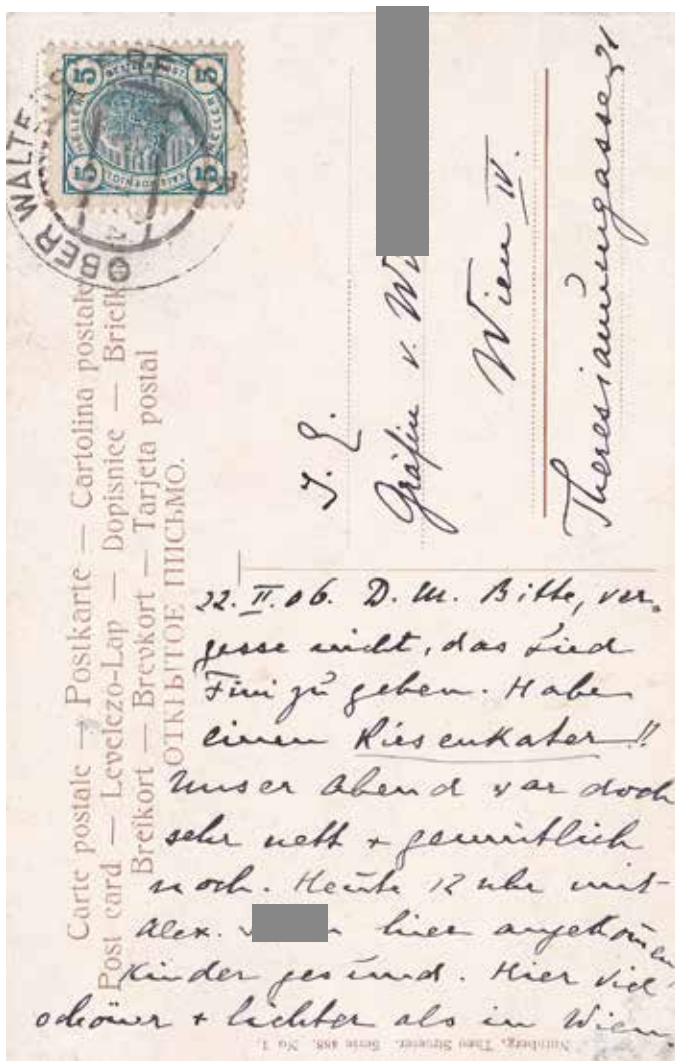 OBER WALTE
5 5 5 5
HELLER
Carte postale — Postkarte — Cartolina postale
Post card — Levelezö-Lap — Dopisnice — Briefk
Breikort — Brevkort — Tarjeta postal
ОТКРЫТОЕ ПИСЬМО.
I. E.
Gräfin v. Wi
Wien IV.
Theresianumgasse 21
22. II. 06. D. M. Bitte, ver-
gesse nicht, das Lied
Fini zu geben. Habe
einen Riesenkater!!
Unser Abend war doch
sehr nett + gemütlich
noch. Heute 12 uhr mit
Alex. v hier angekomen
Kinder gesund. Hier viel
schöner + lichter als in Wien.
Nürnberg, Theo Stroefer. Serie 488. No 1.